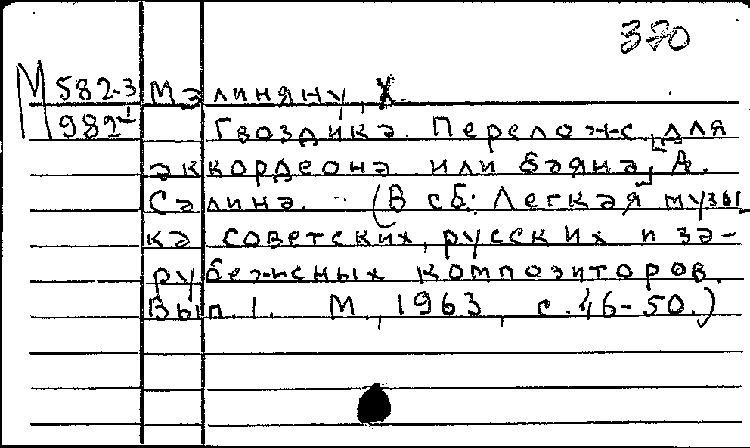 370
М 582-3 Малиняну, Х.
982 Гвоздика. Перелож. для
аккордеона или баяна А.
Салина. (В сб: Легкая музы
ка советских, русских и за-
рубежных композиторов.
Вып. 1. М., 1963, с. 46-50.)